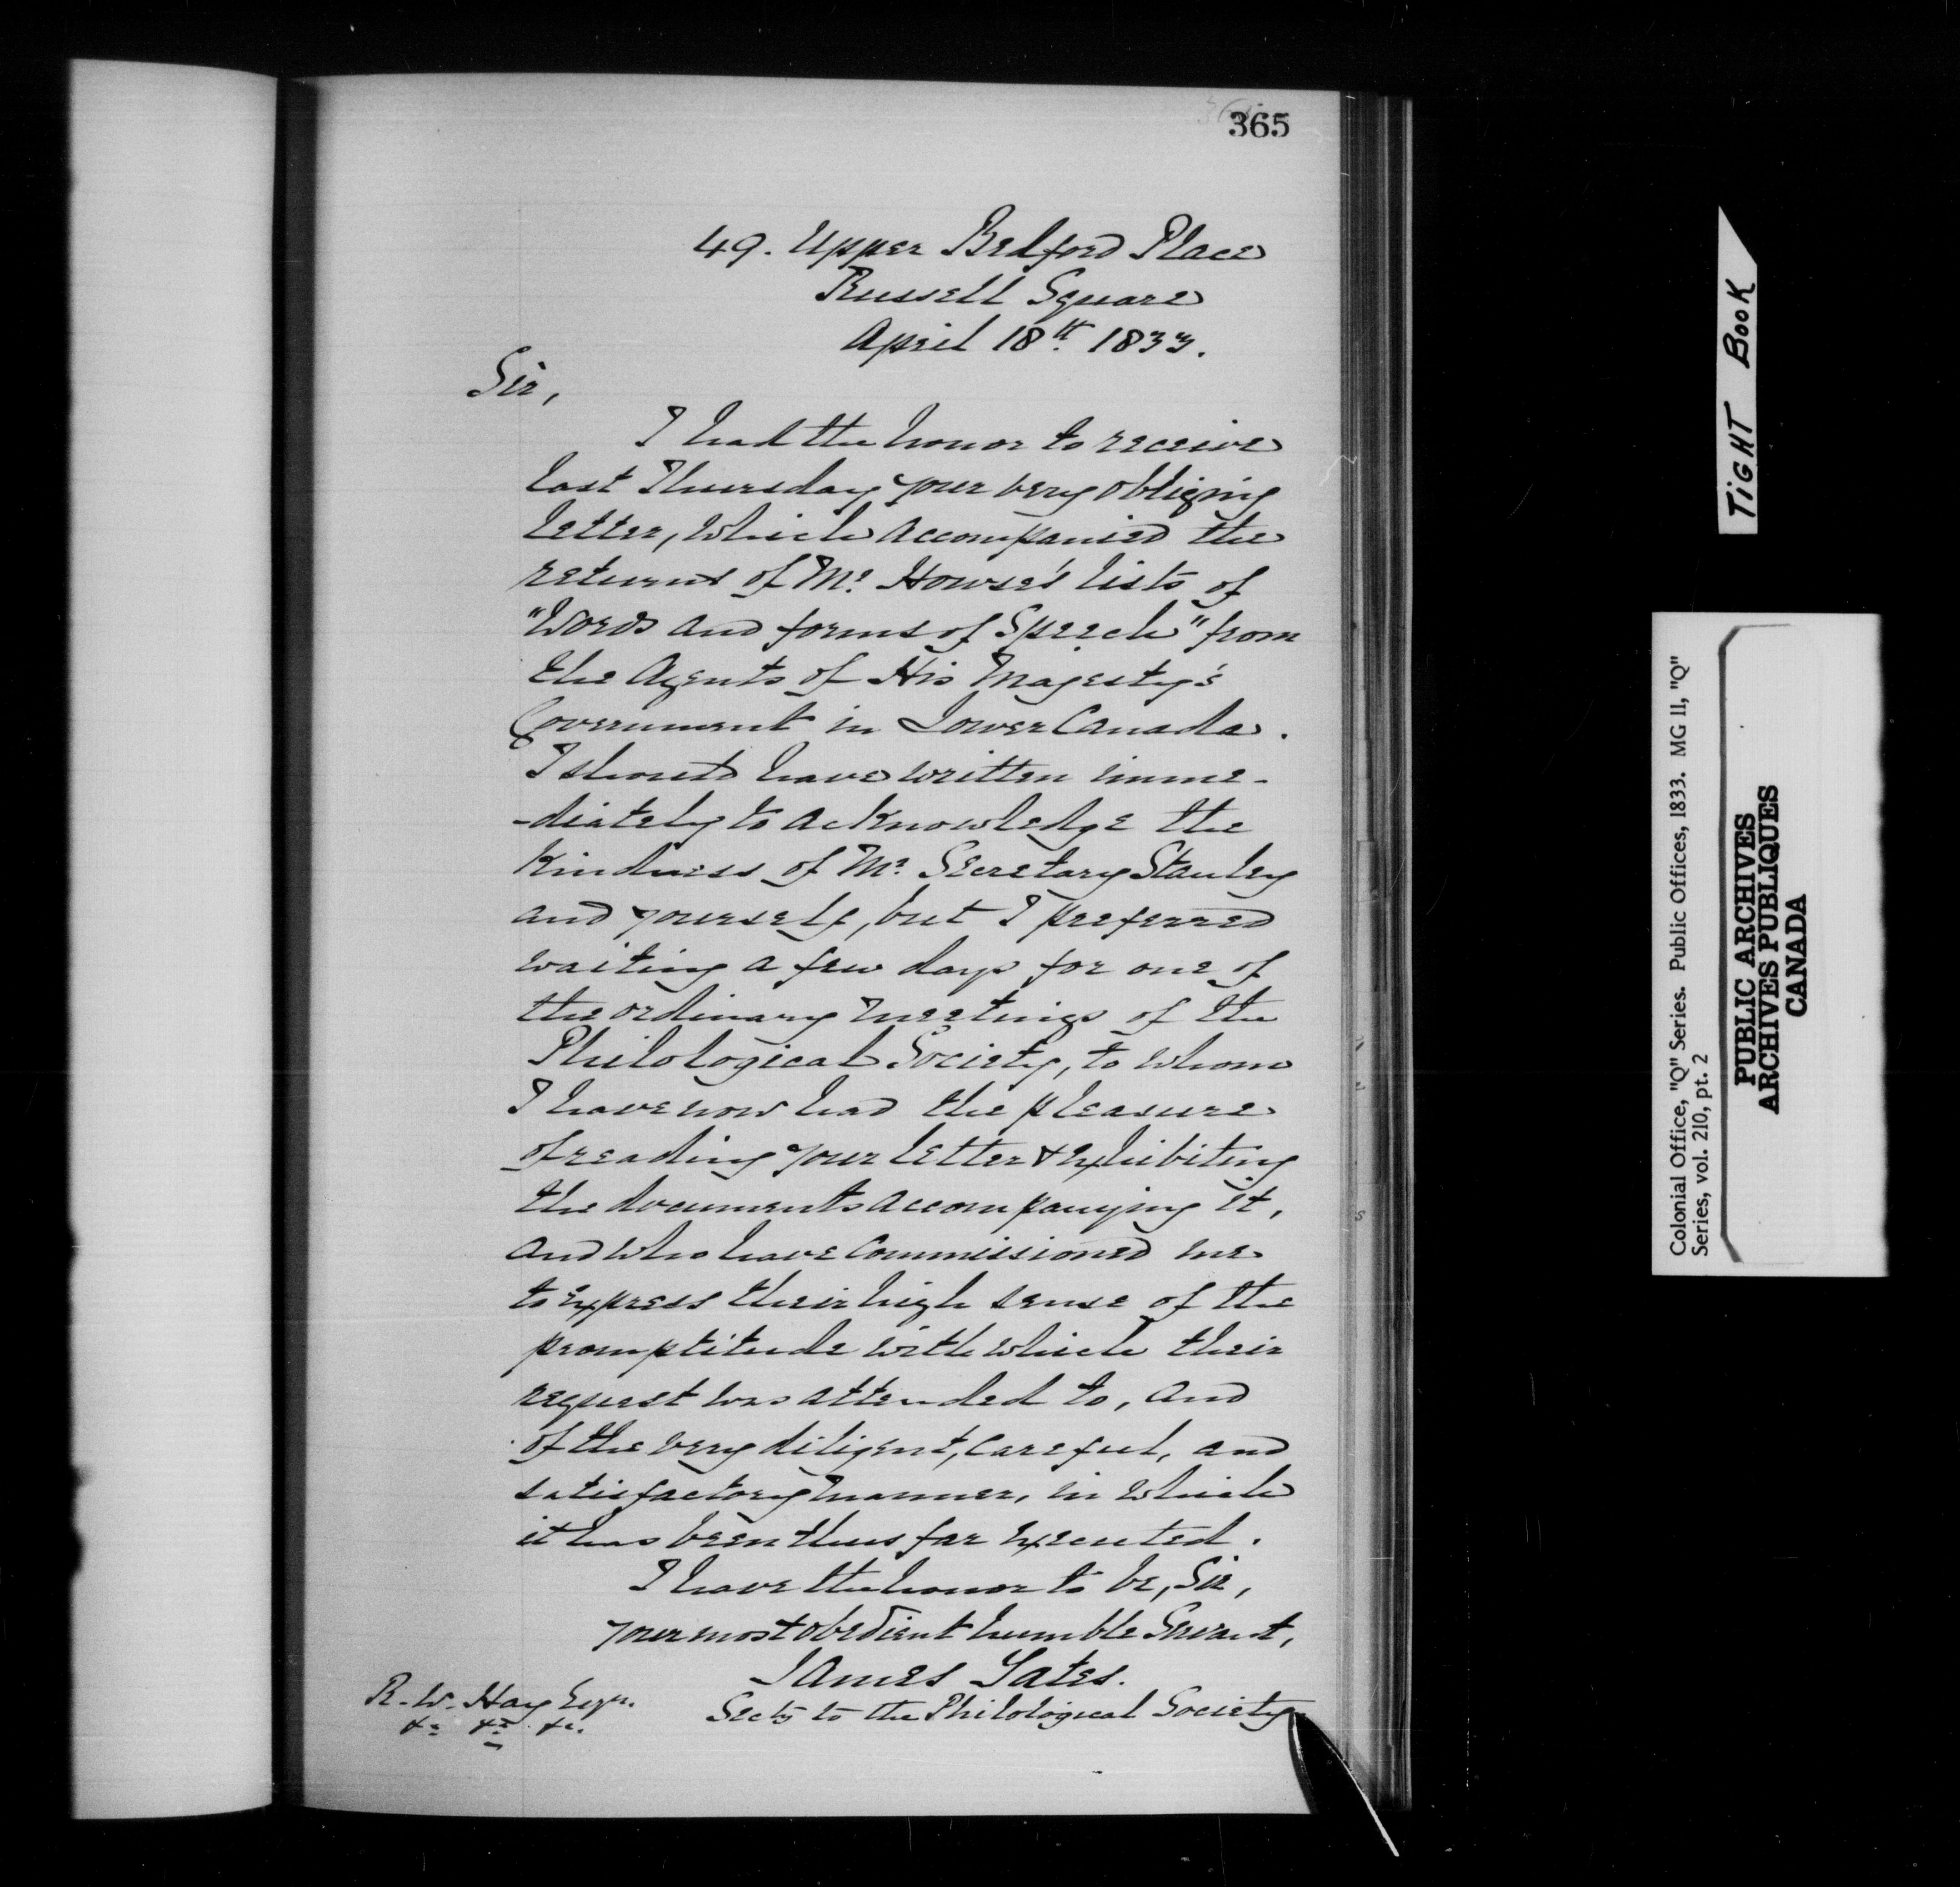 365
49. Upper Bedford Place
Russell Square
April 18th 1833.
Sir,
I had the honor to receive
last Thursday your very obliging
letter, which accompanied the
returns of Mr. Howse's lists of
"Words and forms of Speech" from
the Agents of His Majesty's
Government in Lower Canada.
I should have written imme-
-diately to acknowledge the
kindness of Mr. Secretary Stanley
and yourself, but I preferred
waiting a few days for one of
the ordinary meetings of the
Philological Society, to whom
I have now had the pleasure
of reading your letter & exhibiting
the documents accompanying it,
and who have commissioned me
to express their high sense of the
promptitude with which their
request was attended to, and
of the very diligent, careful, and
satisfactory manner, in which
it has been thus far executed.
I have the honor to be, Sir,
your most obedient humble Servant,
James Yates.
Secty to the Philological Society
R. W. Hay Esqr.
&c &c &c.
TIGHT BOOK
Colonial Office, "Q" Series. Public Offices, 1833. MG 11, "Q"
Series, vol. 210, pt. 2
PUBLIC ARCHIVES
ARCHIVES PUBLIQUES
CANADA